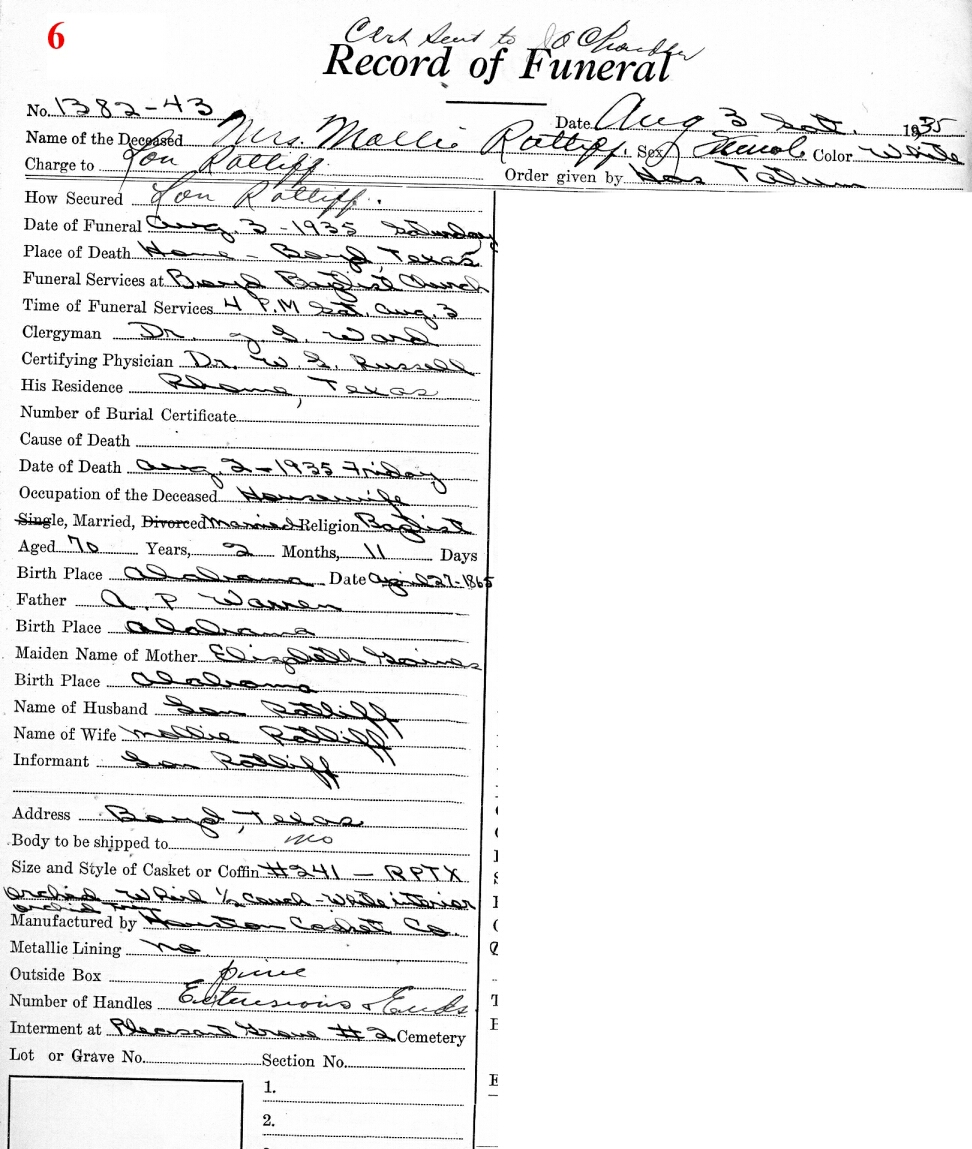 6
Cert sent to J O Chandler
Record of Funeral
No. 1382-43 Date Aug 3 Sat. 1935
Name of the Deceased Mrs. Mollie Ratliff. Sex Female Color White
Charge to Lon Ratliff. Order given by Hos Tatum
How Secured Lon Ratliff.
Date of Funeral Aug. 3 - 1935 Saturday
Place of Death Home - Boyd, Texas
Funeral Services at Boyd Baptist Church
Time of Funeral Services 4 P.M Sat. Aug. 3
Clergyman Dr. J G. Ward
Certifying Physician Dr. W. G. Russell
His Residence Rhome, Texas
Number of Burial Certificate
Cause of Death
Date of Death Aug. 2 - 1935 Friday
Occupation of the Deceased Housewife
Single, Married, Divorced Married Religion Baptist
Aged 70 Years, 2 Months, 11 Days
Birth Place Alabama Date April 27-1865
Father A. P Warren
Birth Place Alabama
Maiden Name of Mother Elizabeth Gaines
Birth Place Alabama
Name of Husband Lon Ratliff
Name of Wife Mollie Ratliff
Informant Lon Ratliff
Address Boyd, Texas
Body to be shipped to no
Size and Style of Casket or Coffin #241 - RPTX
orchid Whirl 1/2 couch - White interior
orchid
Manufactured by Houston Casket Co.
Metallic Lining no
Outside Box pine
Number of Handles Extensions & Ends
Interment at Pleasant Grove #2 Cemetery
Lot or Grave No. Section No.
1.
2.